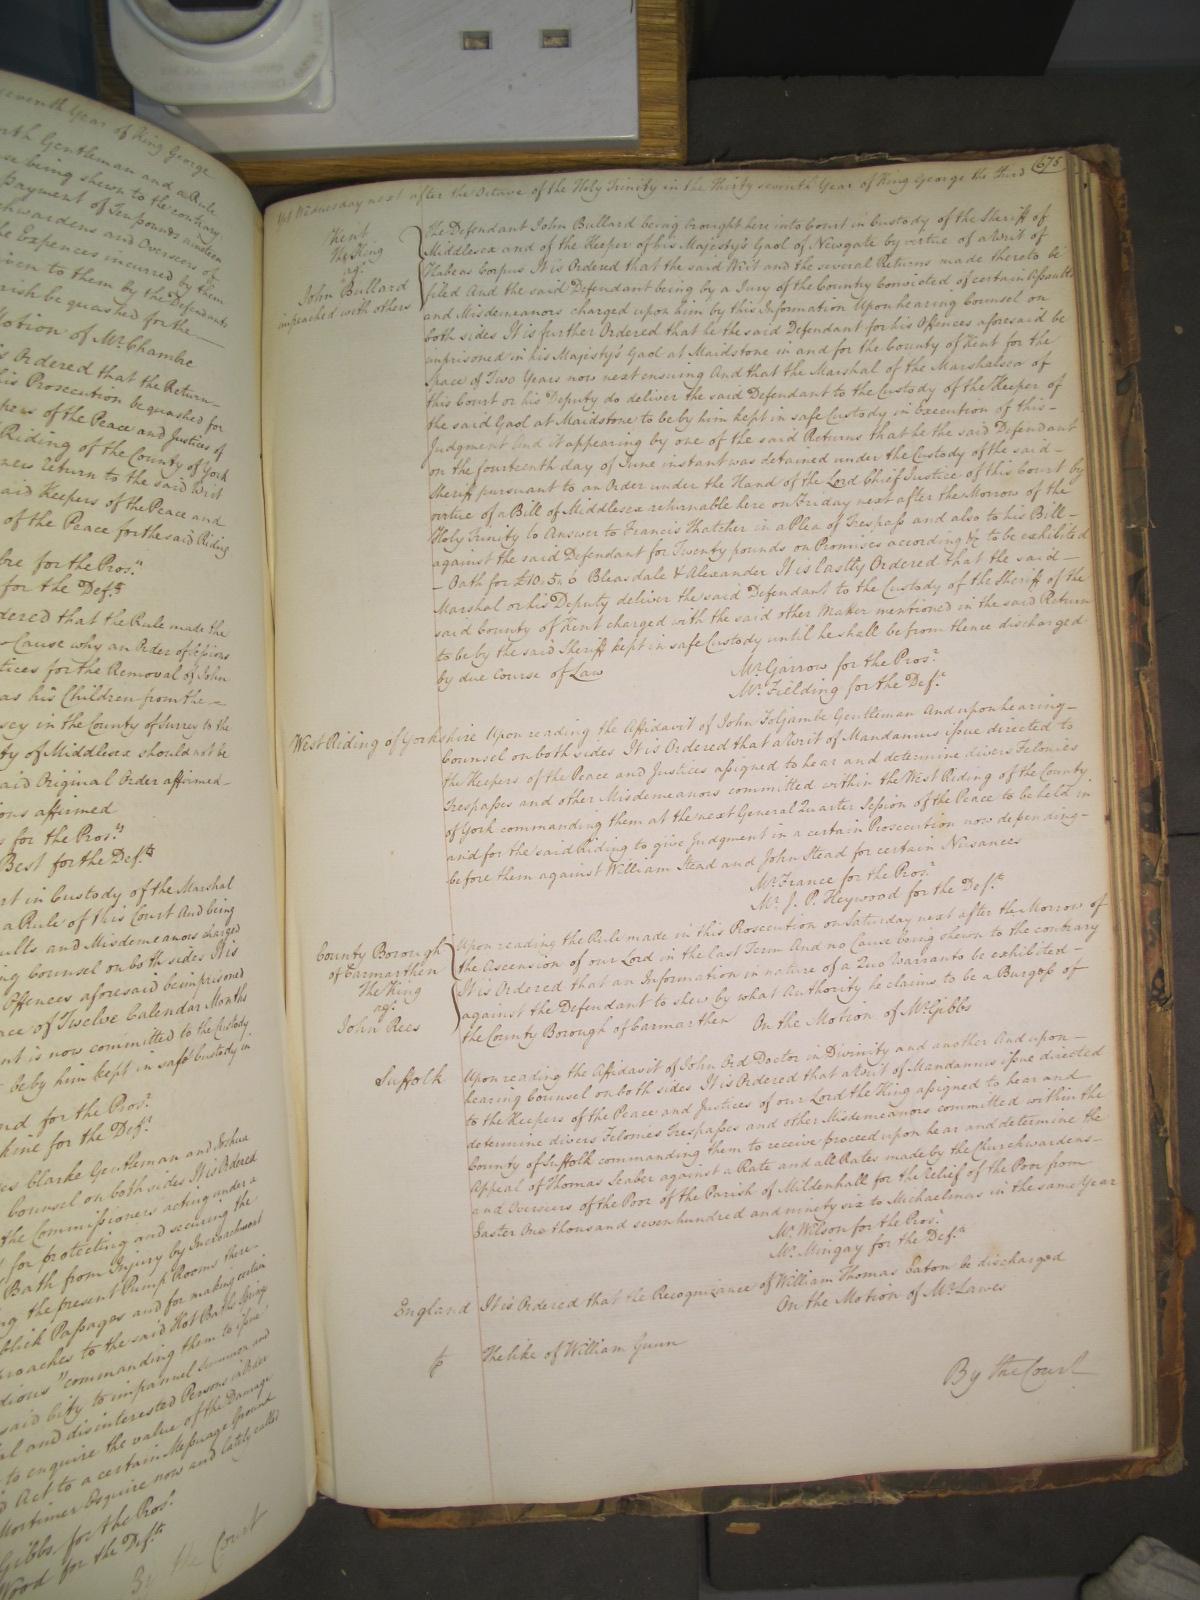 seventh Year of King George
rth Gentleman and a Rule
se being shewn to the contrary
payment of Ten pounds
chwardens and Overseers of
he Expences incurred by them
iven to them by the Defendants
arish be quashed for the
Motion of Mr. Chambre
is Ordered that the Return
his Prosecution be quashed for
pers of the Peace and Justices of
Riding of the County of York
ners return to the said Writ
said Keepers of the Peace and
of the Peace for the said Riding
bre for the Pros.rs
for the Def.ts
dered that the Rule made the
Cause why an Order of Sessions
tices for the Removal of John
as his Children from the
sey in the County of Surrey to the
ty of Middlesex should not be
aid Original Order affirmed
ons affirmed
s for the Pros.rs
Best for the Def.ts
rt in Custody of the Marshal
a Rule of this Court And being
ults and Misdemeanors charged
ing Counsel on both sides It is
Offences aforesaid be imprisoned
ace of Twelve Calendar Months
ant is now committed to the Custody
be by him kept in safe Custody in
nd for the Pros.r
kine for the Def.t
es Clarke Gentleman and Joshua
Counsel on both sides It is Ordered
the Commissioners acting under a
for protecting and securing the
Bath from Injury by Incroachment
ng the present Pump Rooms there
blick Passages and for making certain
roaches to the said Hot Baths Springs
dious" commanding them to issue
said City to impannel Summon and
al and disinterested Persons
to enquire the value of the Damage
Act to a certain Messuage Ground
Mortimer Esquire now and lately called
Gibbs for the Pros.r
Wood for the Def.ts
By the Court
Wednesday next after the Octave of the Holy Trinity in the Thirty seventh Year of King George the third 675
Kent
The King
ag.t
John Bullard
impeached with others
The Defendant John Bullard being brought here into Court in Custody of the Sheriff of
Middlesex and of the Keeper of his Majesty's Gaol of Newgate by virtue of a Writ of
Habeas Corpus It is Ordered that the said Writ and the several Returns made thereto be
filed And the said Defendant being by a Jury of the Country Convicted of certain Assaults
and Misdemeanors charged upon him by this Information Upon hearing Counsel on
both sides It is further Ordered that he the said Defendant for his Offences aforesaid be
imprisoned in his Majesty's Gaol at Maidstone in and for the County of Kent for the
space of Two Years now next ensuing And that the Marshal of the Marshalsea of
this Court or his Deputy do deliver the said Defendant to the Custody of the Keeper of
the said Gaol at Maidstone to be by him kept in safe Custody in Execution of this
Judgment And it appearing by one of the said Returns that he the said Defendant
on the fourteenth day of June instant was detained under the Custody of the said
Sheriff pursuant to an Order under the Hand of the Lord Chief Justice of this Court by
virtue of a Bill of Middlesex returnable here on Friday next after the Morrow of the
Holy Trinity to Answer to Francis Thatcher in a Plea of Trespass and also to his Bill
against the said Defendant for Twenty pounds on Promises according &c to be exhibited
Oath for £10. 5. 6 Bleasdale & Alexander It is lastly Ordered that the said
Marshal or his Deputy deliver the said Defendant to the Custody of the Sheriff of the
said County of Kent charged with the said other Matter mentioned in the said Return
to be by the said Sheriff kept in safe Custody until he shall be from thence discharged
by due Course of Law
Mr. Garrow for the Pros.r
Mr. Fielding for the Def.t
West Riding of Yorkshire Upon reading the Affidavit of John Foljambe Gentleman And upon hearing
Counsel on both sides It is Ordered that a Writ of Mandamus issue directed to
the Keepers of the Peace and Justices assigned to hear and determine divers Felonies
Trespasses and other Misdemeanors committed within the West Riding of the County
of York commanding them at the next General Quarter Session of the Peace to be held in
and for the said Riding to give Judgment in a certain Prosecution now depending
before them against William Stead and John Stead for certain Nusances
Mr. France for the Pros.r
Mr. J. P. Heywood for the Def.ts
County Borough
of Carmarthen
The King
ag.t
John Rees
Upon reading the Rule made in this Prosecution on Saturday next after the Morrow of
the Ascension of our Lord in the last Term And no Cause being shewn to the contrary
It is Ordered that an Information in nature of a Quo Warranto be exhibited
against the Defendant to shew by what Authority he claims to be a Burgess of
the County Borough of Carmarthen On the Motion of Mr. Gibbs
Suffolk
Upon reading the Affidavit of John Ord Doctor in Divinity and another And upon
hearing Counsel on both sides It is Ordered that a Writ of Mandamus issue directed
to the Keepers of the Peace and Justices of our Lord the King assigned to hear and
determine divers Felonies Trespasses and other Misdemeanors committed within the
County of Suffolk commanding them to receive proceed upon hear and determine the
Appeal of Thomas Seaber against a Rate and all Rates made by the Churchwardens
and Overseers of the Poor of the Parish of Mildenhall for the Relief of the Poor from
Easter One thousand seven hundred and ninety six to Michaelmas in the same Year
Mr. Wilson for the Pros.r
Mr. Mingay for the Def.ts
England It is Ordered that the Recognizance of William Thomas Eaton be discharged
On the Motion of Mr. Lawes
The like of William Gunn
By the Court